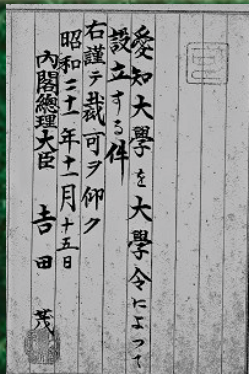 愛知大學を大學令によって
設立する件
右謹テ裁可ヲ仰ク
昭和二十一年十一月十五日
內閣總理大臣 吉田茂